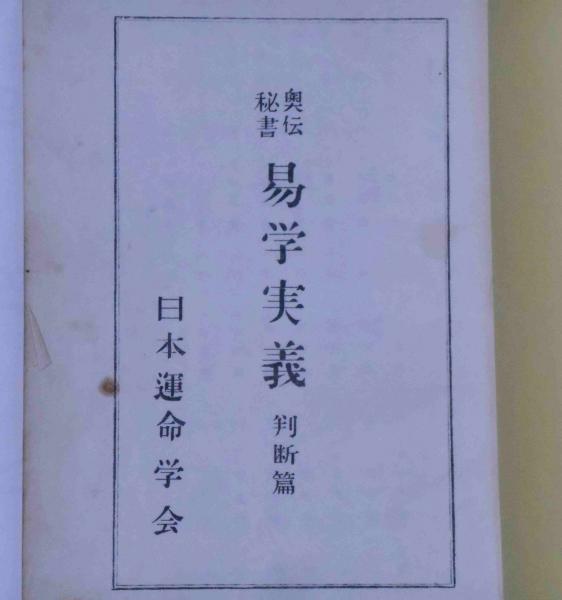 奥伝
秘書
易学実義 判断篇
日本運命学会